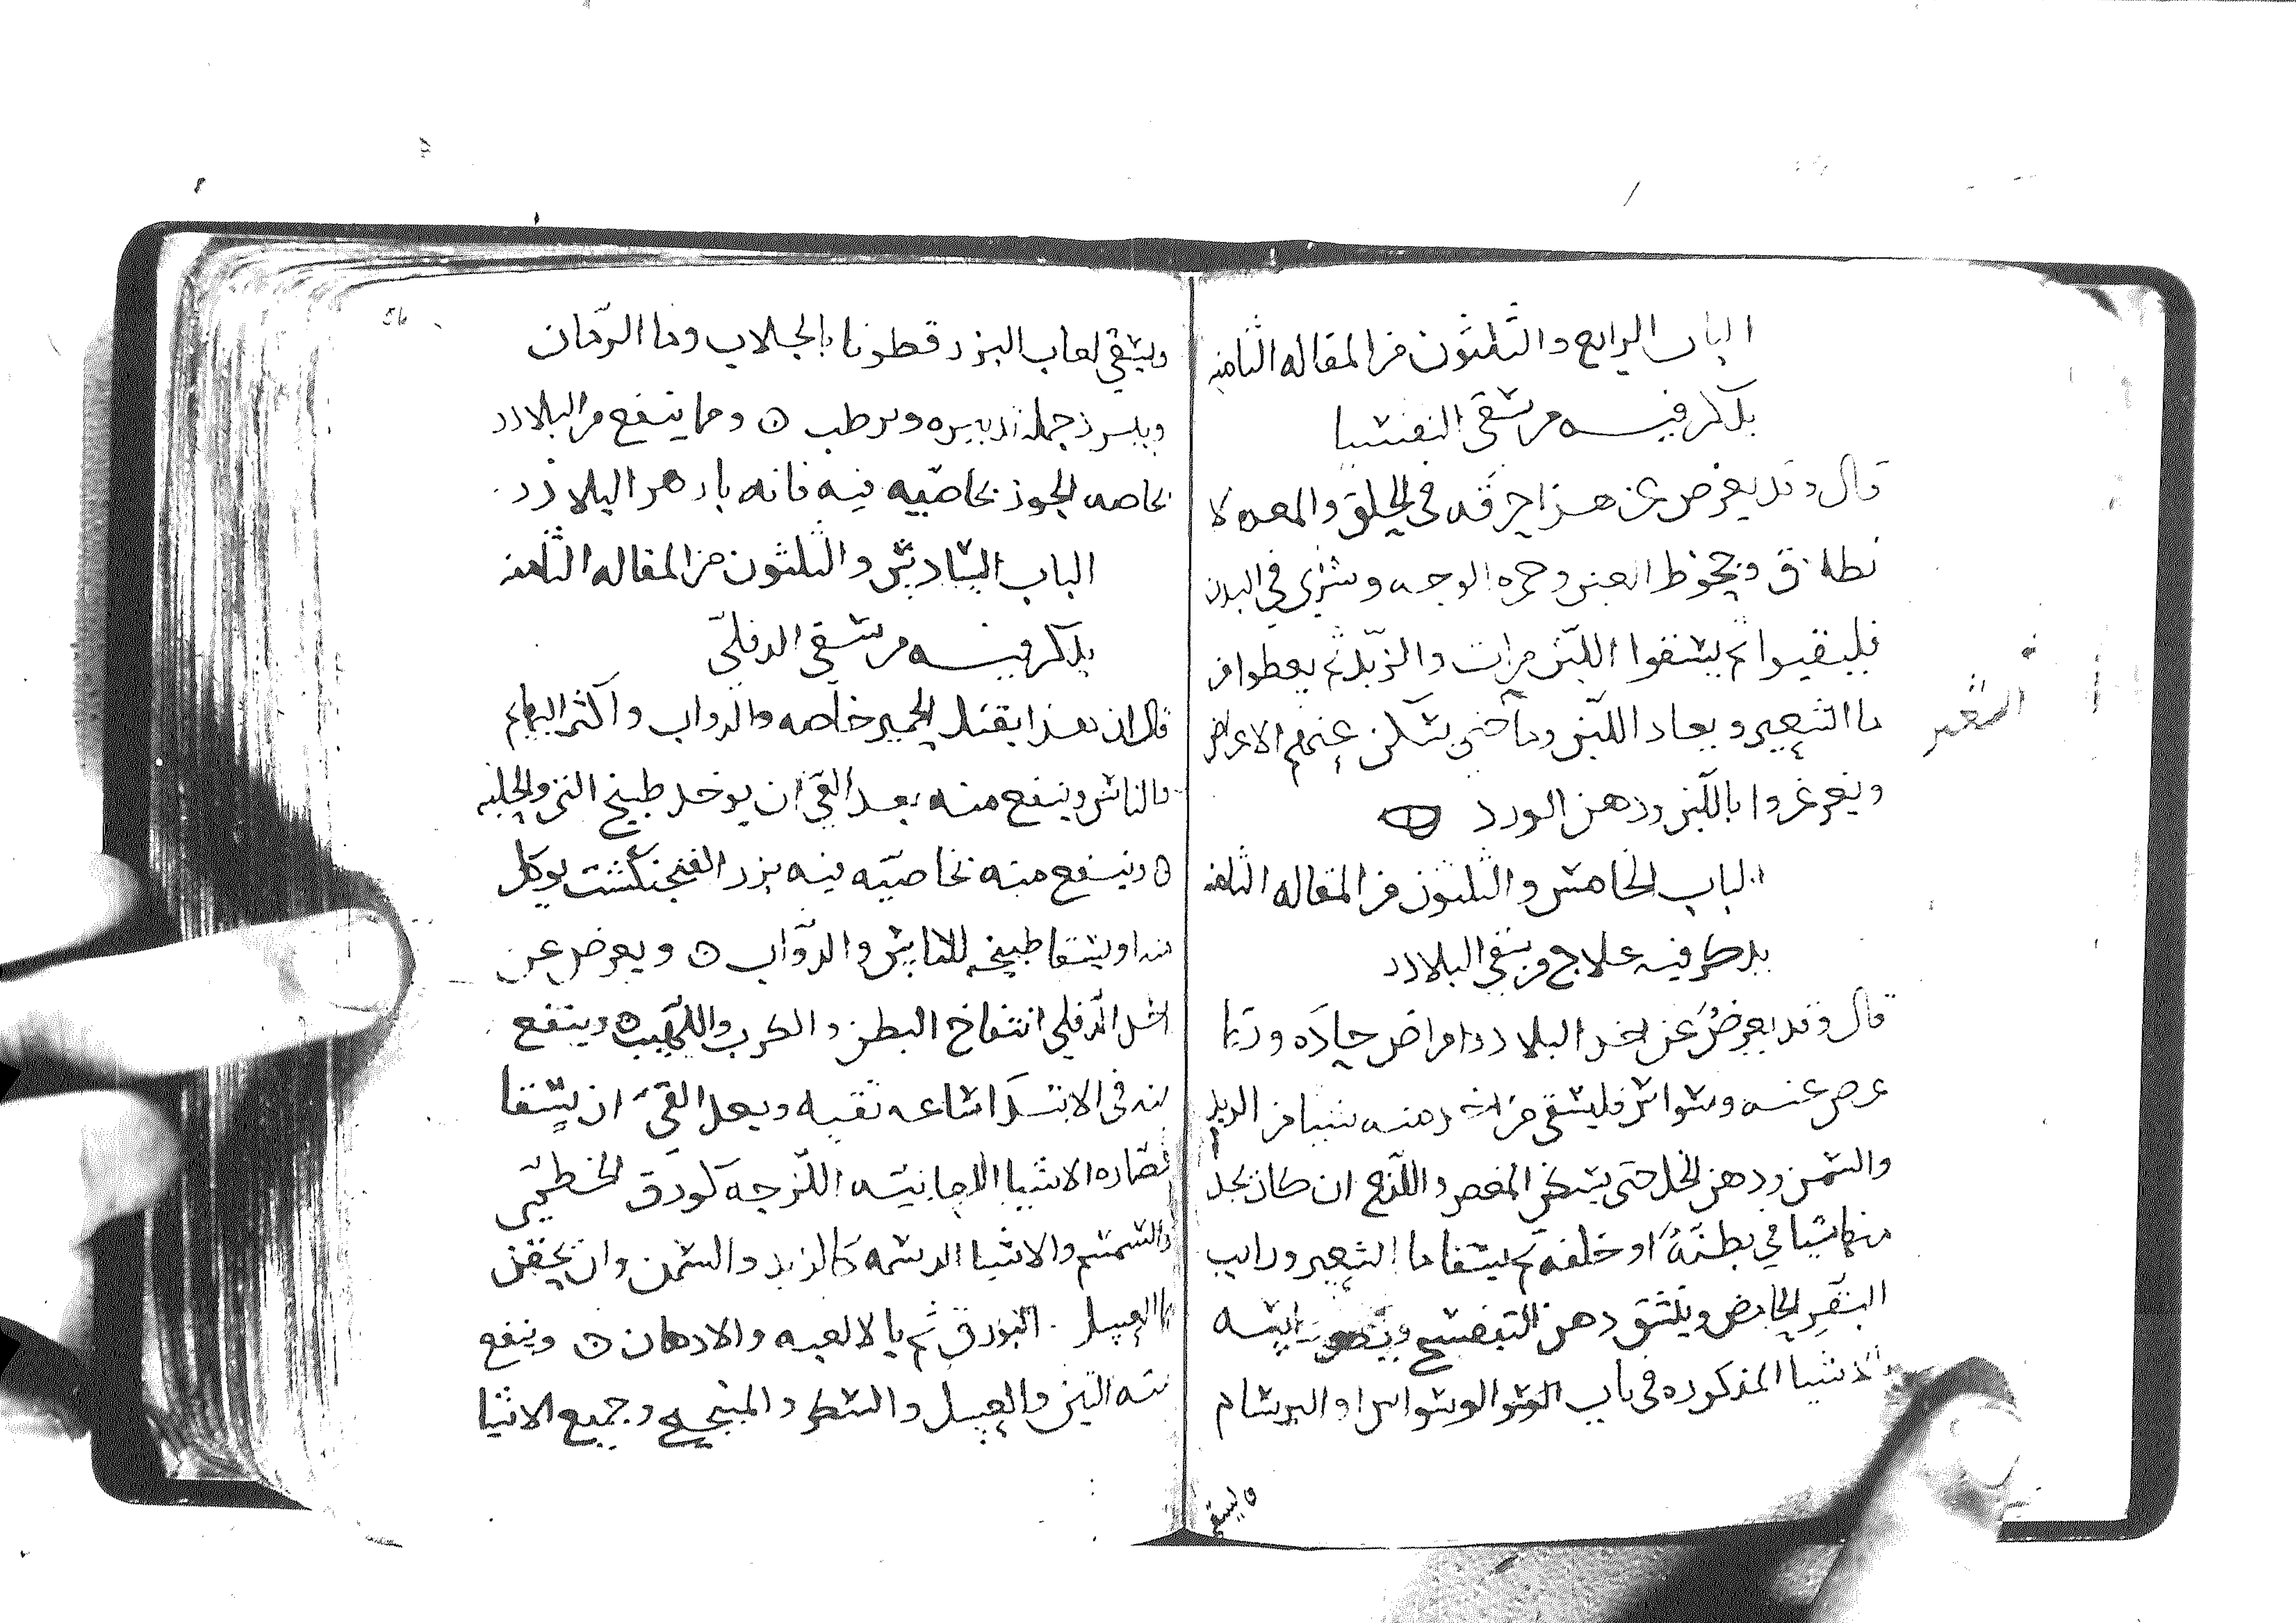 الباب الرابع والثلثون من المقاله الثامنه
يذكر فيه من سقى التفسيا
قال وقد يعرض عن هذا حرقه في الحلق والمعده لا
تطاق وجحوظ العين وحمره الوجه وشرى في البدن
فليقيوا ثم يسقوا اللبن مرات والزبد ثم يعطوا من
ما الشعير ويعاد اللبن وما حتى يسكن عنهم الاعراض
ويغرغروا باللبن ودهن الورد
الباب الخامس والثلثون من المقاله الثامنه
يذكر فيه علاج من سقي البلادر
قال وقد يعرض عن اخذ البلادر امراض حاده وربما
عرض عنه وسواس فليسقى من اخذ منه شيا من الزبد
والسمن ودهن الخل حتى يسكن المغص واللذع ان كان يجد
منهما شيا في بطنه او خلفه ثم يسقا ما الشعير ورايب
البقر الحامض وينشق دهن البنفسج راسه
الاشيا المذكوره في باب الوسواس او البرسام
ويسقي
الشعير
ويسقي لعاب البزرقطونا بالجلاب وما الرمان
ويبرد جمله تدبيره ويرطب ه ومما ينفع من البلادر
بخاصه الجوز بخاصيه فيه فانه بازهر البلاذر
الباب السادس والثلثون من المقاله الثامنه
يذكر فيه من سقي الدفلى
قال ان هذا يقتل الحمير خاصه والدواب واكثر البهايم
والناس وينفع منه بعد القي ان يوخذ طبيخ التين والحلبه
ه وينفع منه بخاصيه فيه بزر الفنجنكشت يوكل
منه او يسقا طبيخه للناس والدواب ه ويعرض عن
اكل الدفلى انتفاخ البطن والكرب واللهيب ه وينفع
منه في الابتدا ساعه تقيه وبعد القي ان يسقا
عصاره الاشيا اللعابيه اللزجه كورق الخطمي
والسمسم والاشيا الدسمه كالزبد والسمن وان يحقن
بالعسل البورق ثم بالالعبه والادهان ه وينفع
منه التين والعسل والسكر والميبختج وجميع الاشيا